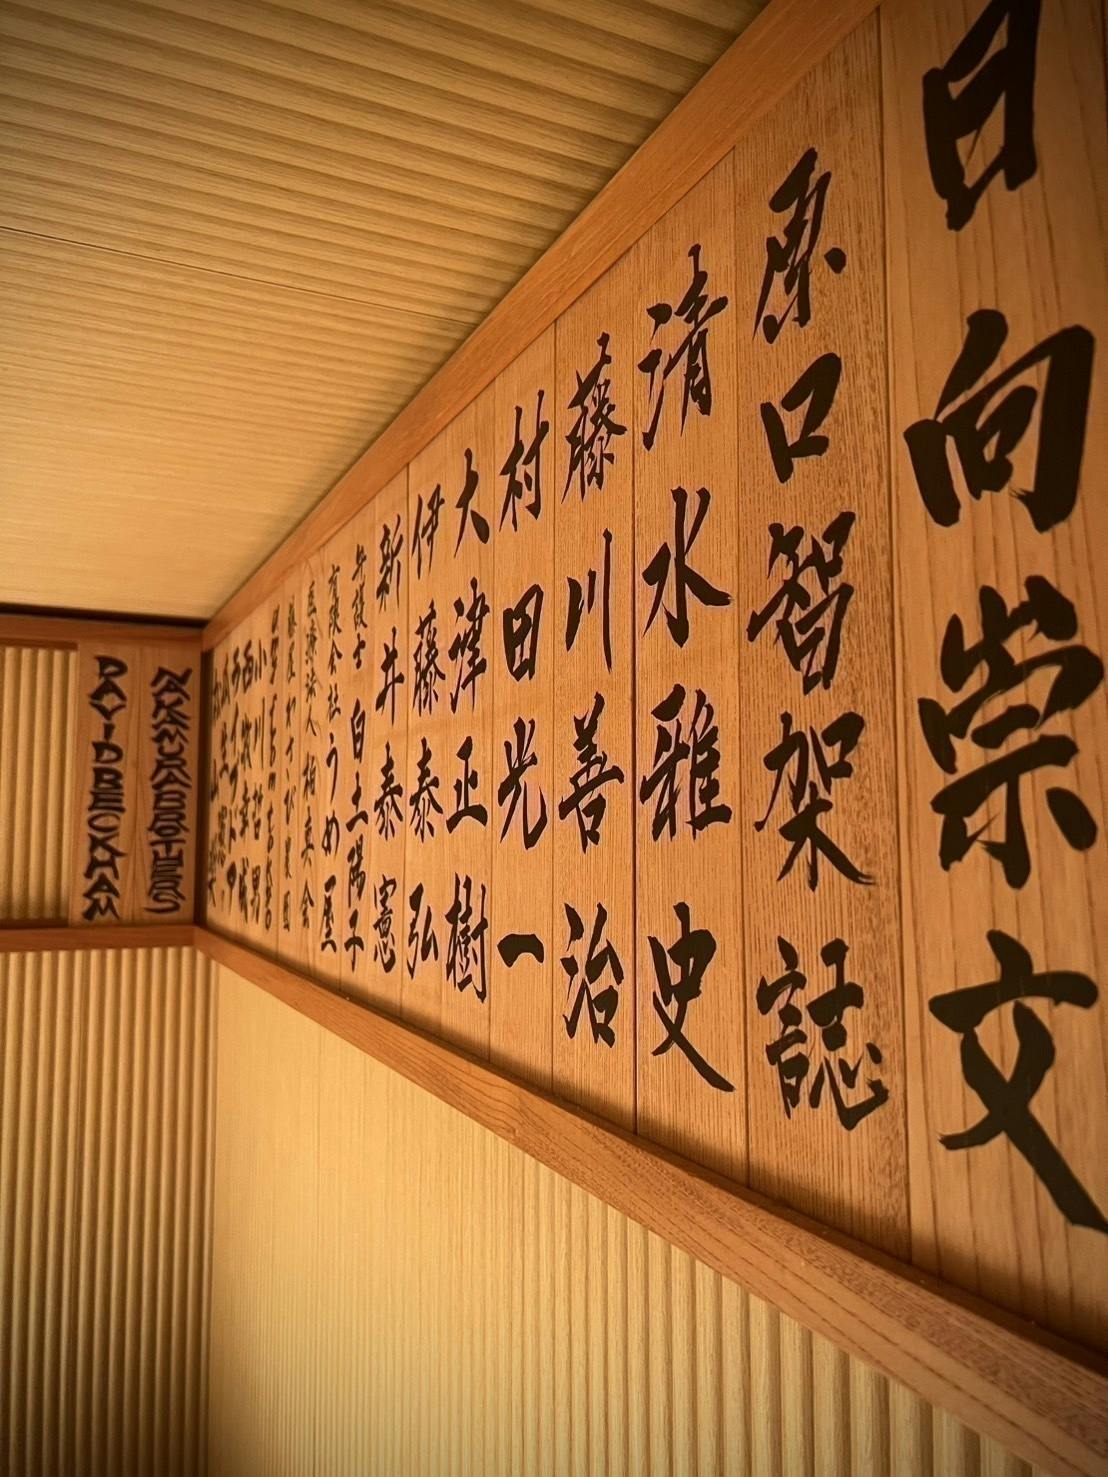 日向崇文
原口智架誌
清水雅史
藤川善治
村田光一
大津正樹
伊藤泰弘
新井泰憲
弁護士 白土陽子
有限会社うめ屋
医療法人 柏真会
小川哲男
NAKAMURABROTHERS
DAVIDBECKHAM